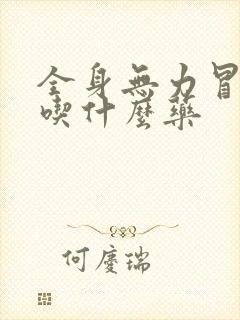 全身無力冒
喫什麼藥
何慶瑞